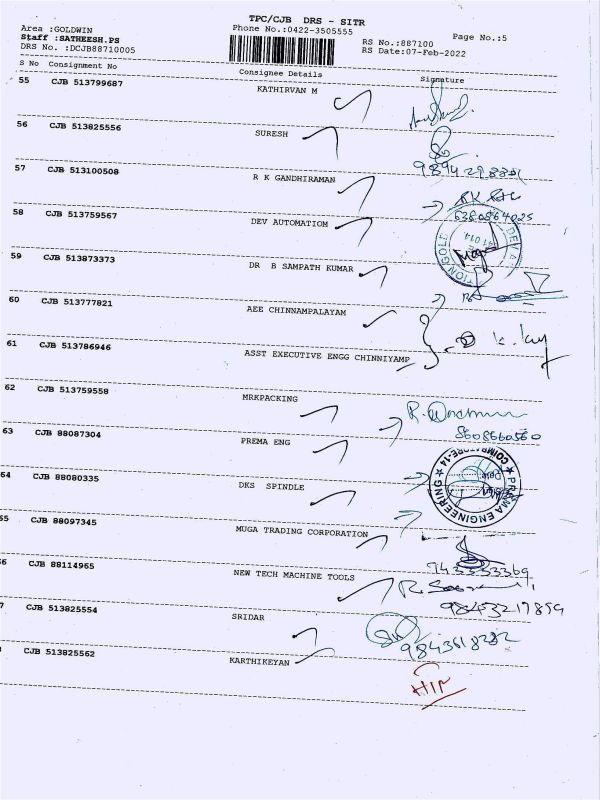 TPC/CJB DRS - SITR
Area :GOLDWIN
Phone No.:0422-3505555
Page No.:5
Staff :SATHEESH.PS
RS No.:887100
DRS No. :DCJB88710005
RS Date:07-Feb-2022
S No Consignment No Consignee Details Signature
55 CJB 513799687 KATHIRVAN M
56 CJB 513825556 SURESH
57 CJB 513100508 R K GANDHIRAMAN
58 CJB 513759567 DEV AUTOMATIOM
6380864025
59 CJB 513873373 DR B SAMPATH KUMAR
60 CJB 513777821 AEE CHINNAMPALAYAM
61 CJB 513786946 ASST EXECUTIVE ENGG CHINNIYAMP
62 CJB 513759558 MRKPACKING
8608660560
63 CJB 88087304 PREMA ENG
PREMA ENGINEERING
COIMBATORE-14
64 CJB 88080335 DKS SPINDLE
65 CJB 88097345 MUGA TRADING CORPORATION
66 CJB 88114965 NEW TECH MACHINE TOOLS
9843217894
7 CJB 513825554 SRIDAR
9843618282
CJB 513825562 KARTHIKEYAN